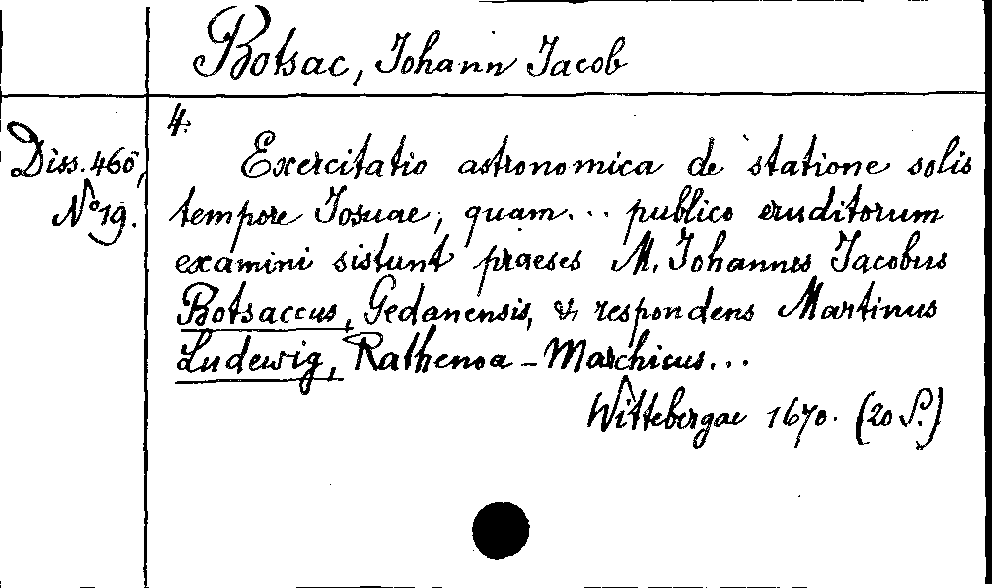 Botsac, Johann Jacob
4.
Diss. 460,
No 19.
Exercitatio astronomica de statione solis
tempore Josuae, quam... publico eruditorum
examini sistunt praeses M. Johannes Jacobus
Botsaccus, Gedanensis, & respondens Martinus
Ludewig, Rathenoa-Marchicus...
Wittebergae 1670. (20 S.)